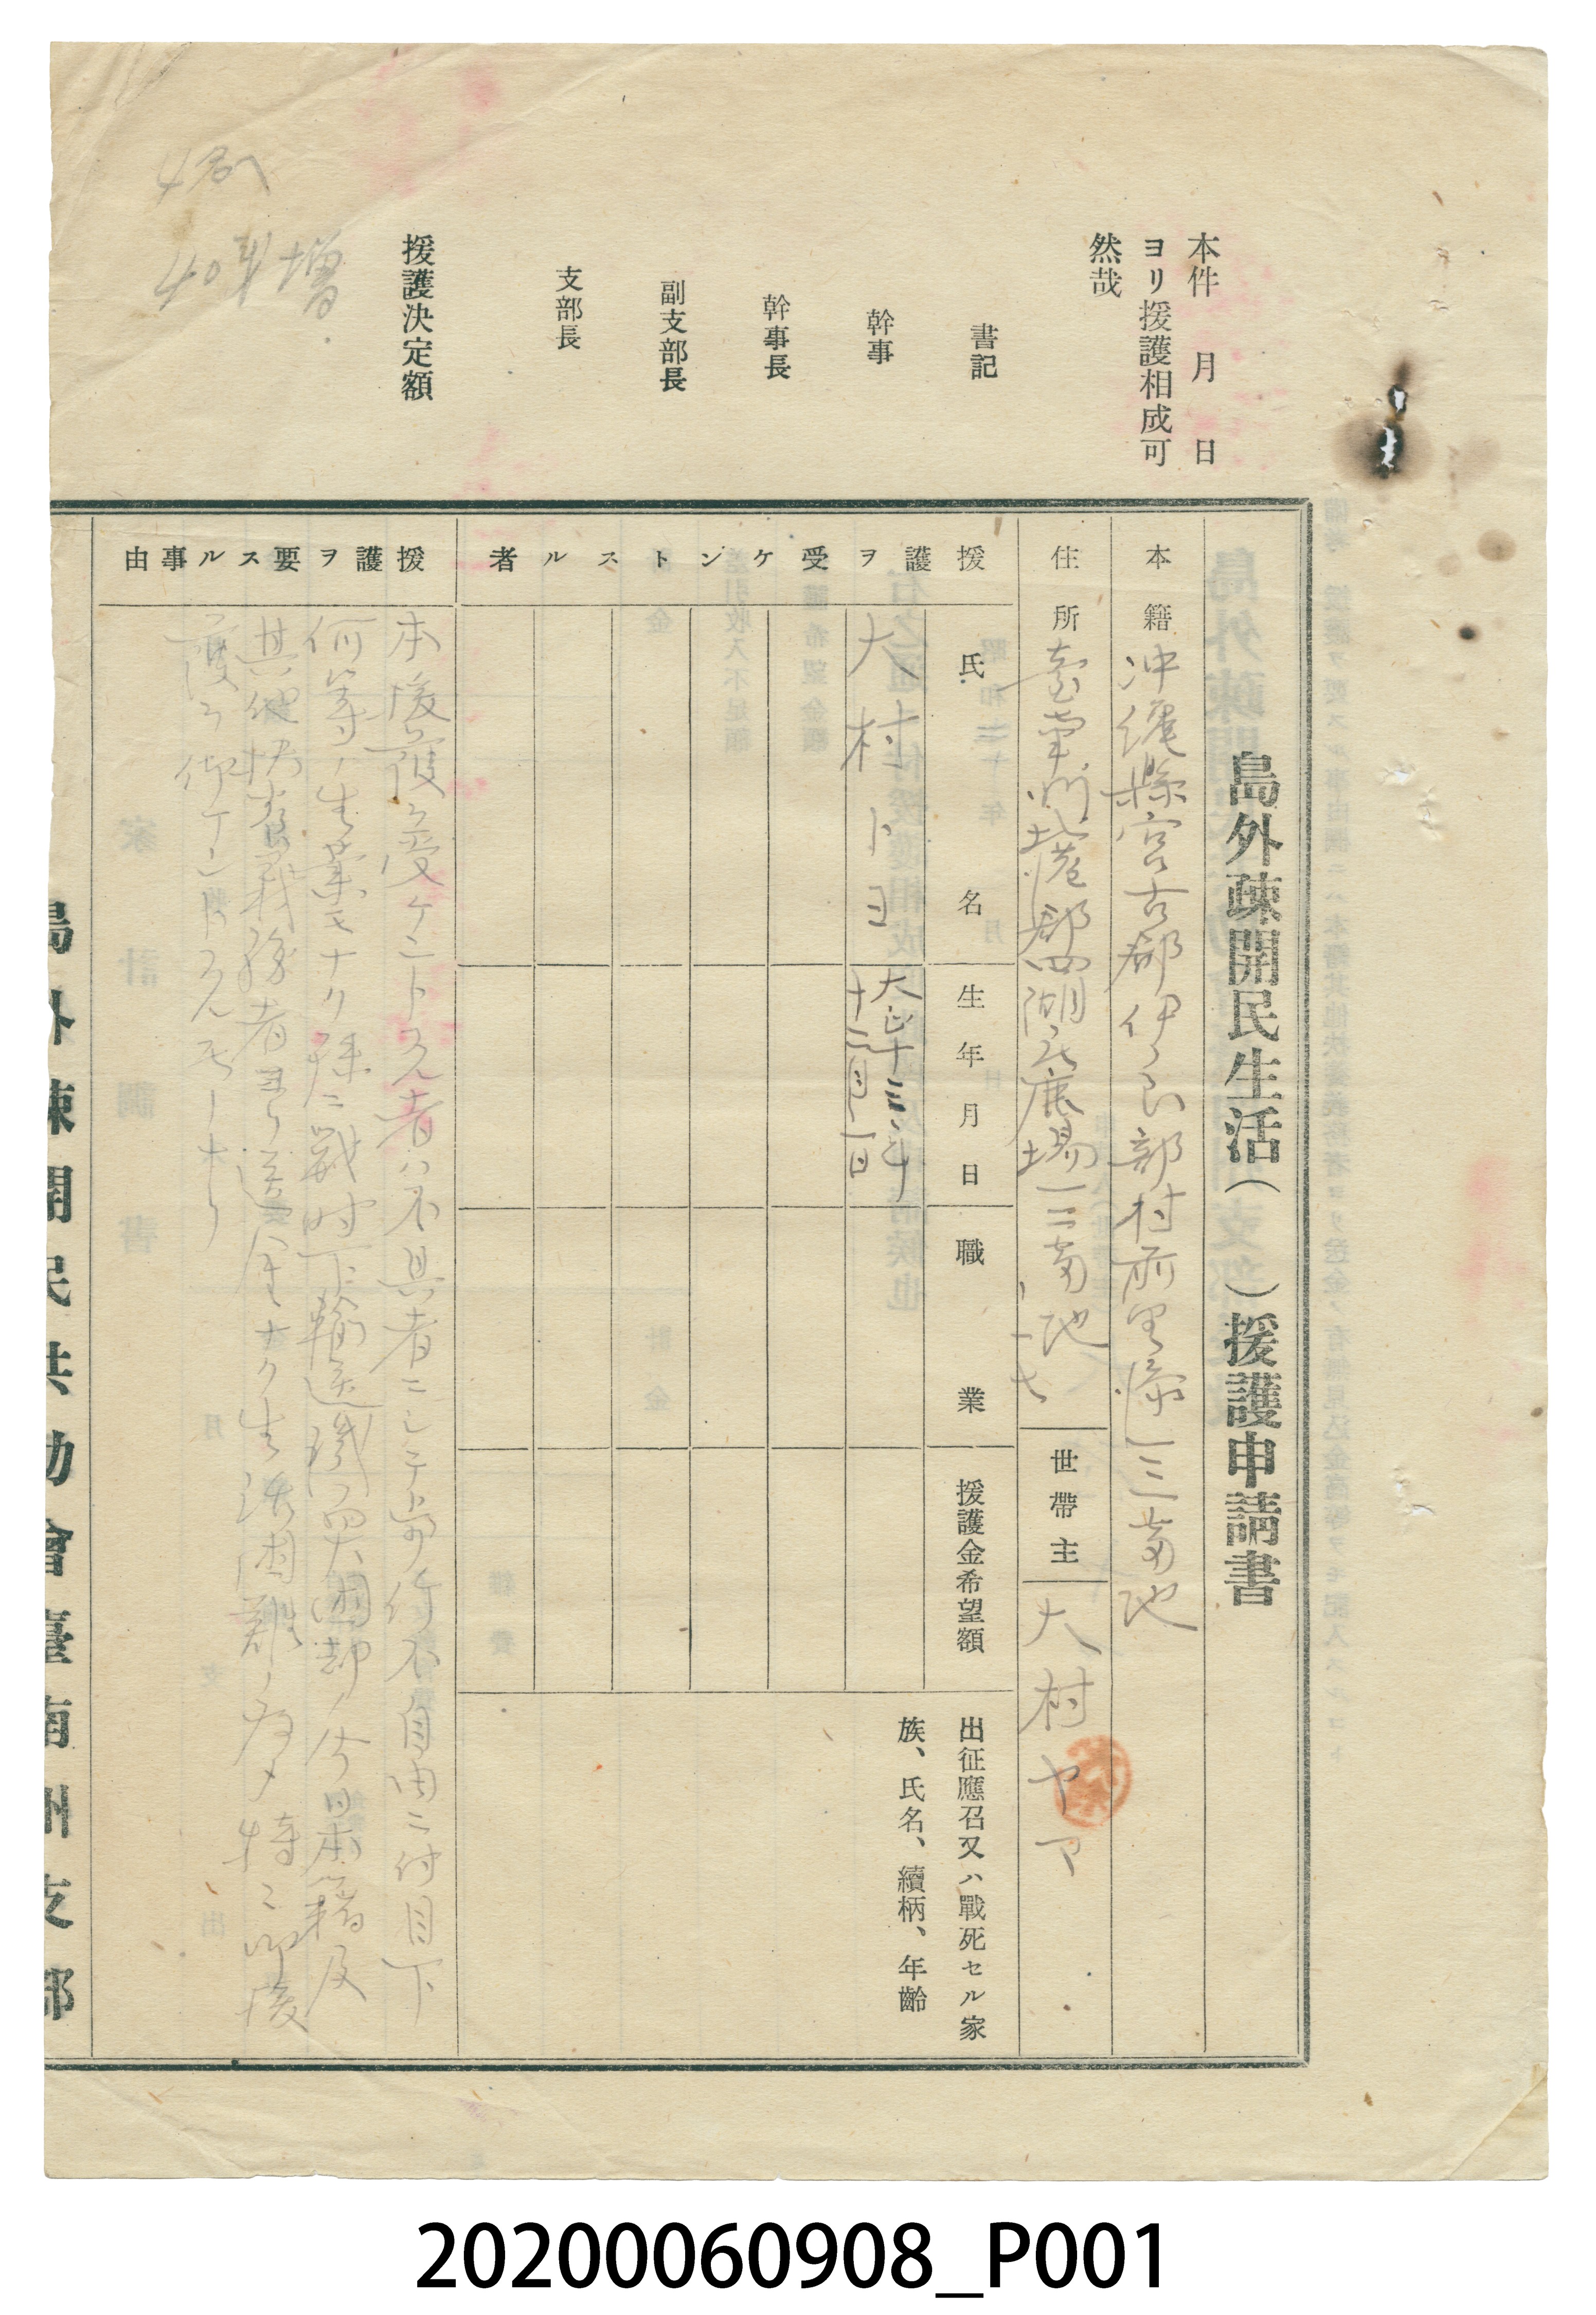 島外疎開民生活（　　）援護申請書
本籍
沖縄縣宮古郡伊良部村前里添一三番地
住所
臺南州北港郡四湖庄鹿場一三番地
世帶主
大村ヤマ
援護ヲ受ケントスル者
氏名
生年月日
職業
援護金希望額
出征應召又ハ戰死セル家
族、氏名、續柄、年齡
大村トヨ
大正十三年
十二月一日
援護ヲ要スル事由
本援護ヲ受ケントスル者ハ不具者ニシテ歩行不自由ニ付目下
何等ノ生業モナク殊ニ戰時下輸送機関困却ノ今日本籍及
其他扶養義務者ヨリ送金ナク生活困難ノ為メ特ニ御援
護ヲ御ケントスルモノナリ
島外疎開民共助會臺南州支部
本件　月　日
ヨリ援護相成可
然哉
書記
幹事
幹事長
副支部長
支部長
援護決定額
増
20200060908_P001